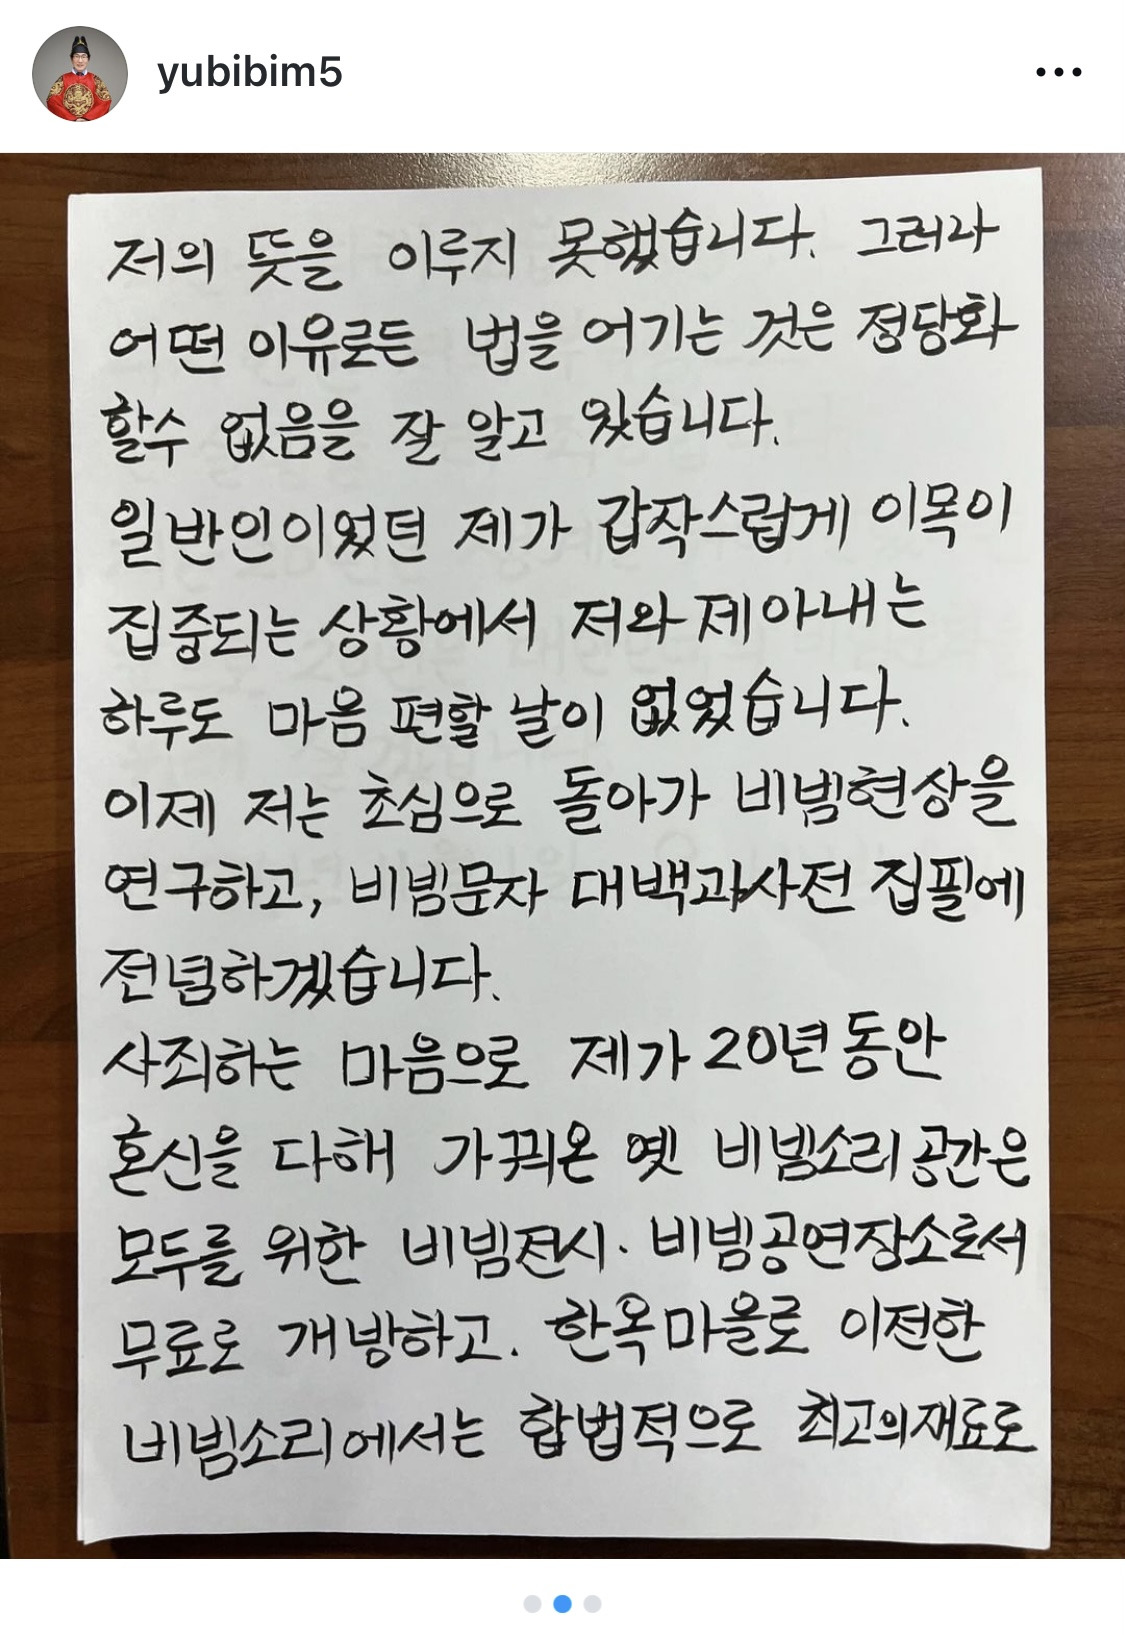 yubibim5
저의 뜻을 이루지 못했습니다. 그러나
어떤 이유로든 법을 어기는 것은 정당화
할수 없음을 잘 알고 있습니다.
일반인이었던 제가 갑작스럽게 이목이
집중되는 상황에서 저와 제 아내는
하루도 마음 편할 날이 없었습니다.
이제 저는 초심으로 돌아가 비빔현상을
연구하고, 비빔문자 대백과사전 집필에
전념하겠습니다.
사죄하는 마음으로 제가 20년 동안
혼신을 다해 가꿔온 옛 비빔소리 공간은
모두를 위한 비빔전시. 비빔공연장소로서
무료로 개방하고. 한옥마을로 이전한
비빔소리에서는 합법적으로 최고의 재료로